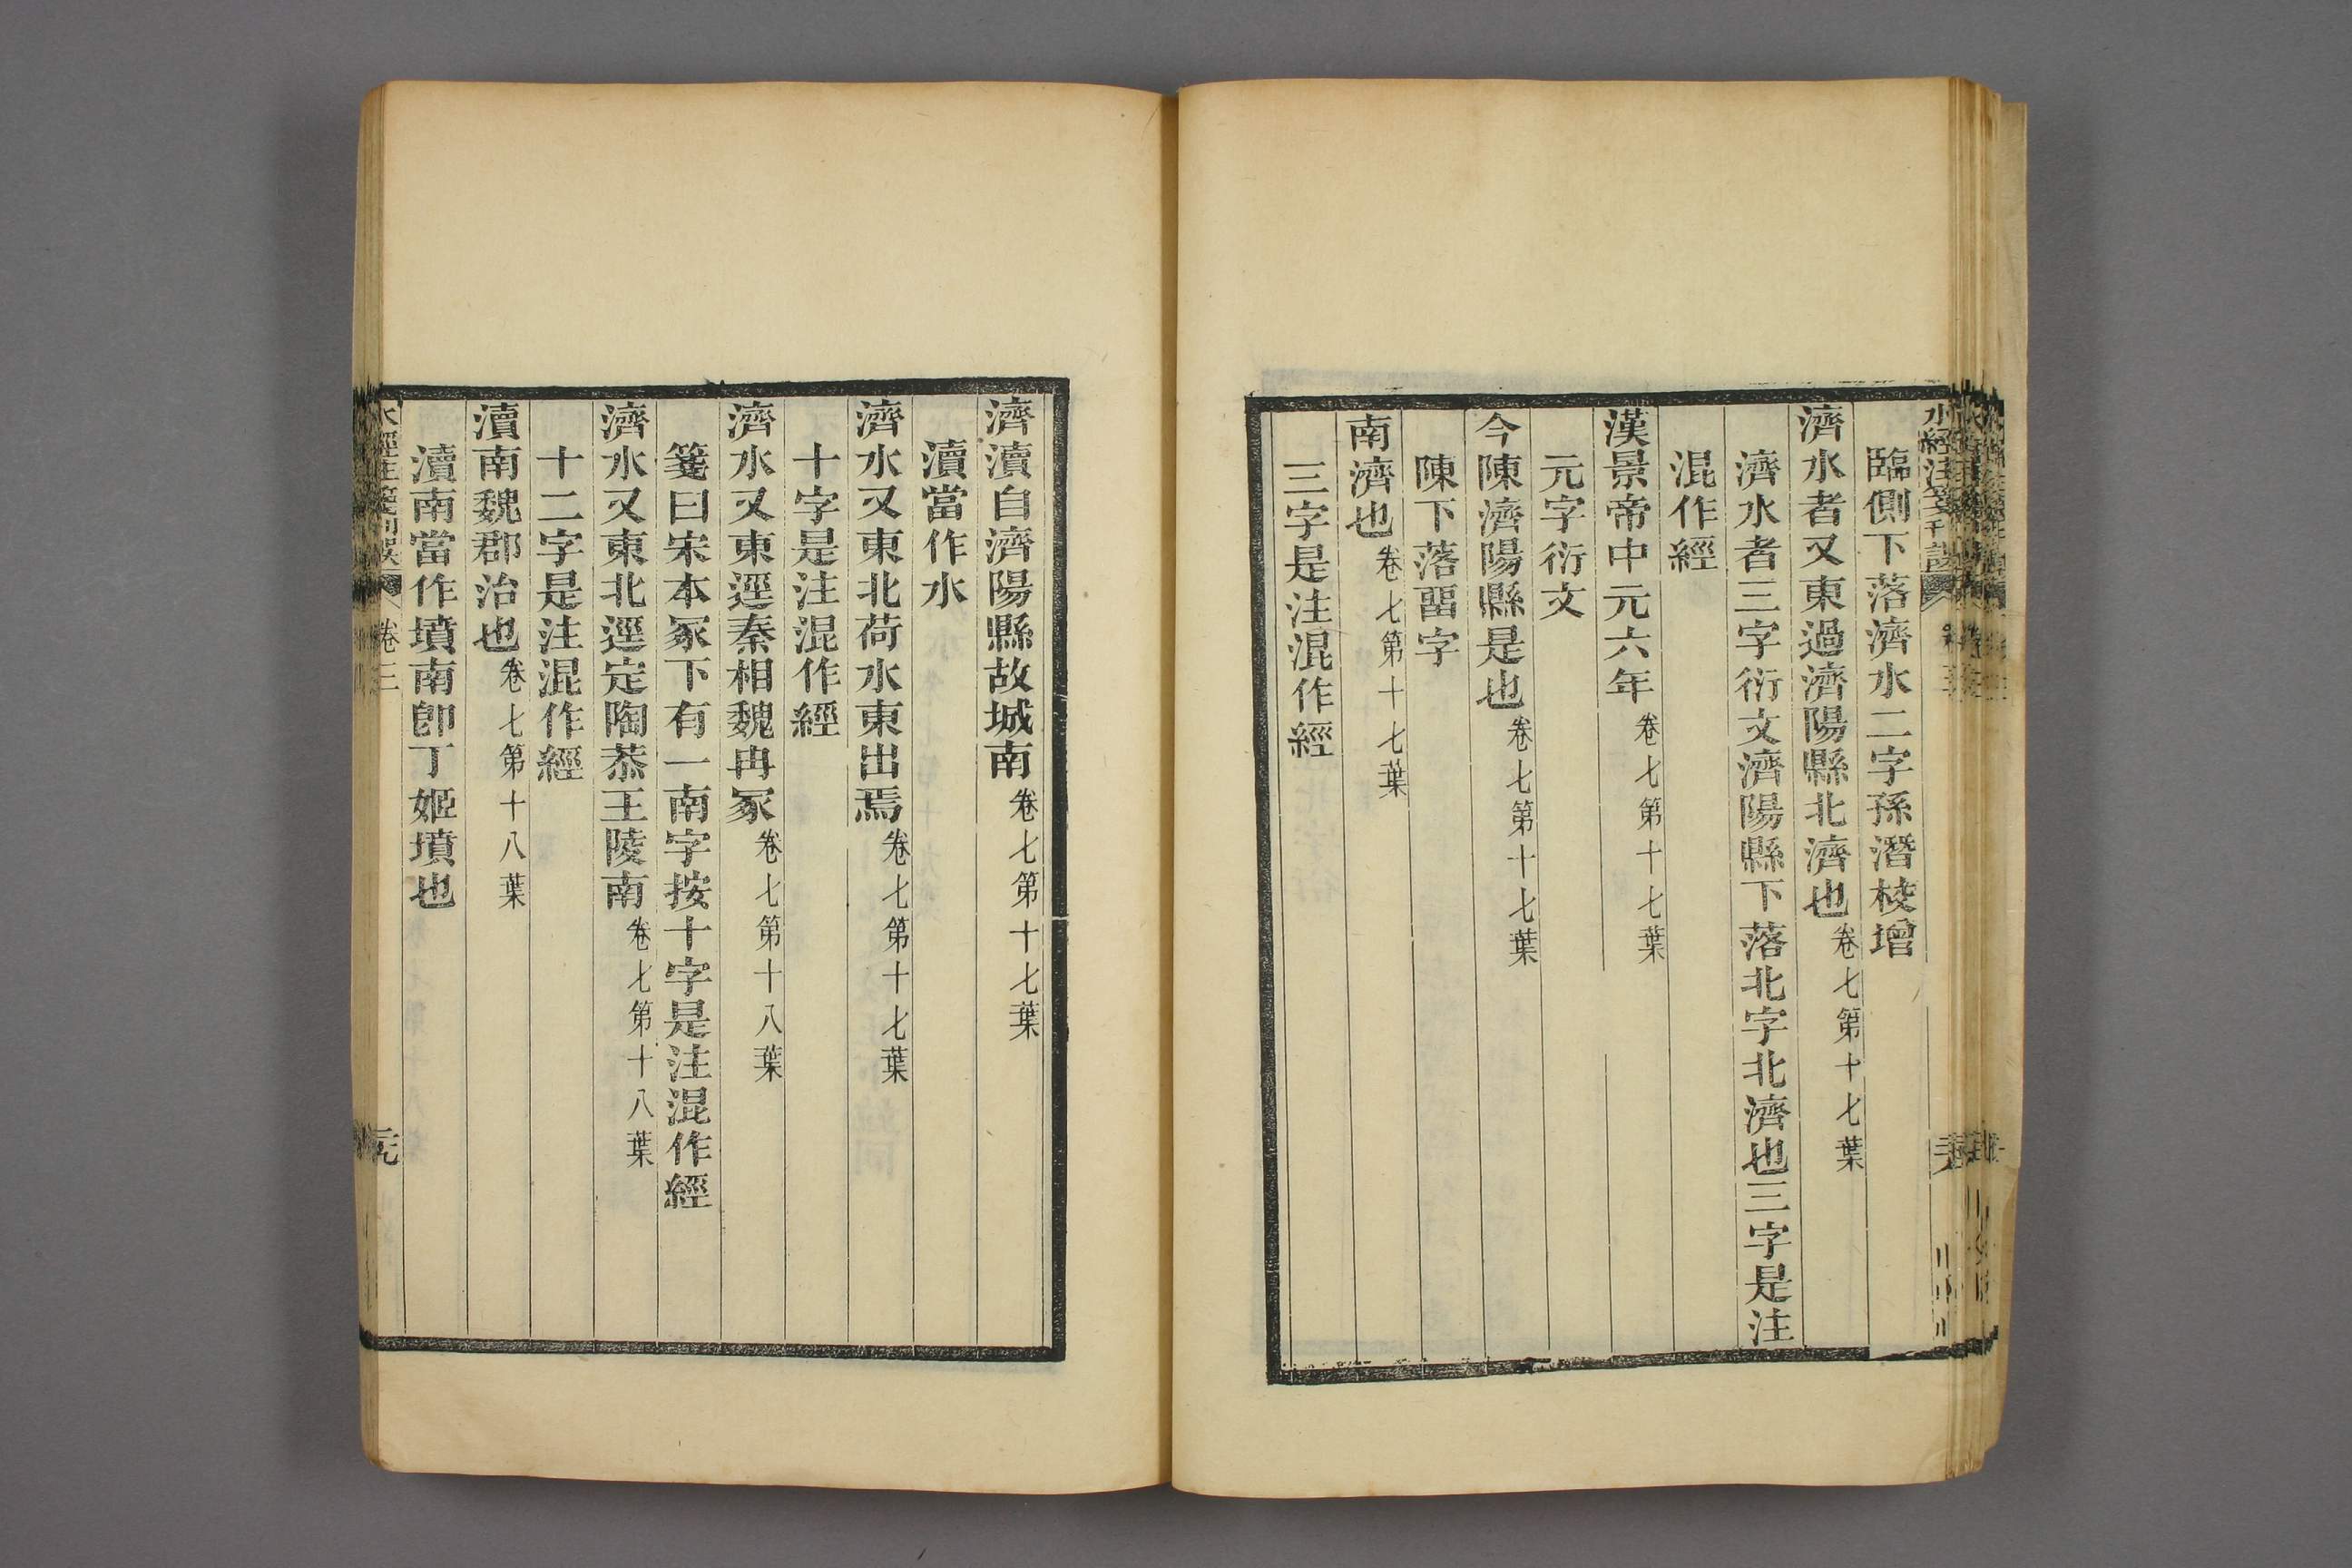 水經注箋刊誤 卷三
臨側下落濟水二字孫潛校增
濟水者又東過濟陽縣北濟也卷七第十七葉
濟水者三字衍文濟陽縣下落北字北濟也三字是注
混作經
漢景帝中元六年卷七第十七葉
元字衍文
今陳濟陽縣是也卷七第十七葉
陳下落畱字
南濟也卷七第十七葉
三字是注混作經
濟瀆自濟陽縣故城南卷七第十七葉
瀆當作水
濟水又東北荷水東出焉卷七第十七葉
十字是注混作經
濟水又東逕秦相魏冉冢卷七第十八葉
箋曰宋本冢下有一南字按十字是注混作經
濟水又東北逕定陶恭王陵南卷七第十八葉
十二字是注混作經
瀆南魏郡治也卷七第十八葉
瀆南當作墳南卽丁姬墳也
水經注箋刊誤 卷三